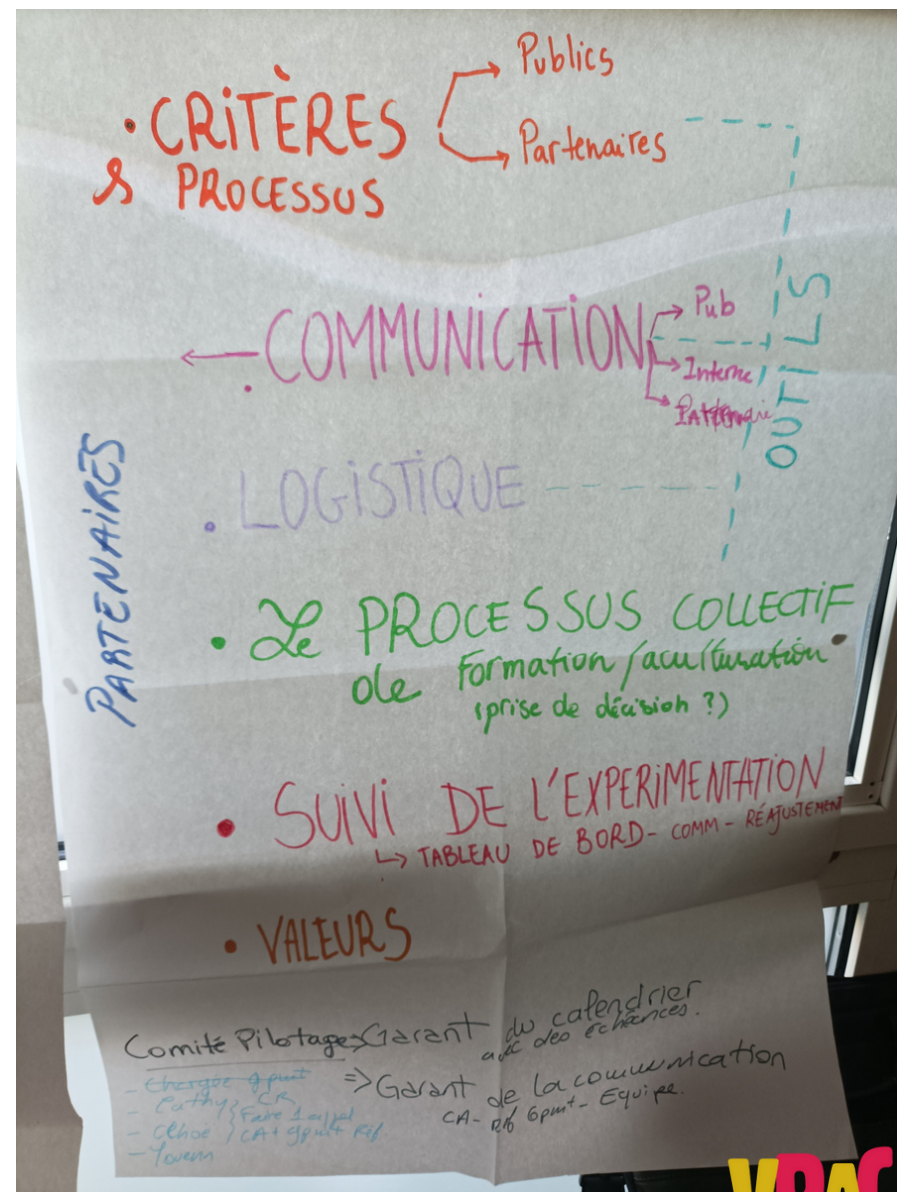 Publics
• CRITÈRES
Partenaires
& PROCESSUS
OUTILS
• COMMUNICATION
Pub
Interne
Partenaire
PARTENAIRES
• LOGISTIQUE
• Le PROCESSUS COLLECTIF
de formation/aculturation
(prise de décision ?)
• SUIVI DE L'EXPERIMENTATION
↳ TABLEAU DE BORD - COMM - RÉAJUSTEMENT
• VALEURS
Comité Pilotage => Garant du calendrier
avec des échéances.
=> Garant de la communication
CA - Réf Gpmt - Equipe.
- Cathy } CR
Faire 1 appel
CA + gpmt Réf
VRAC